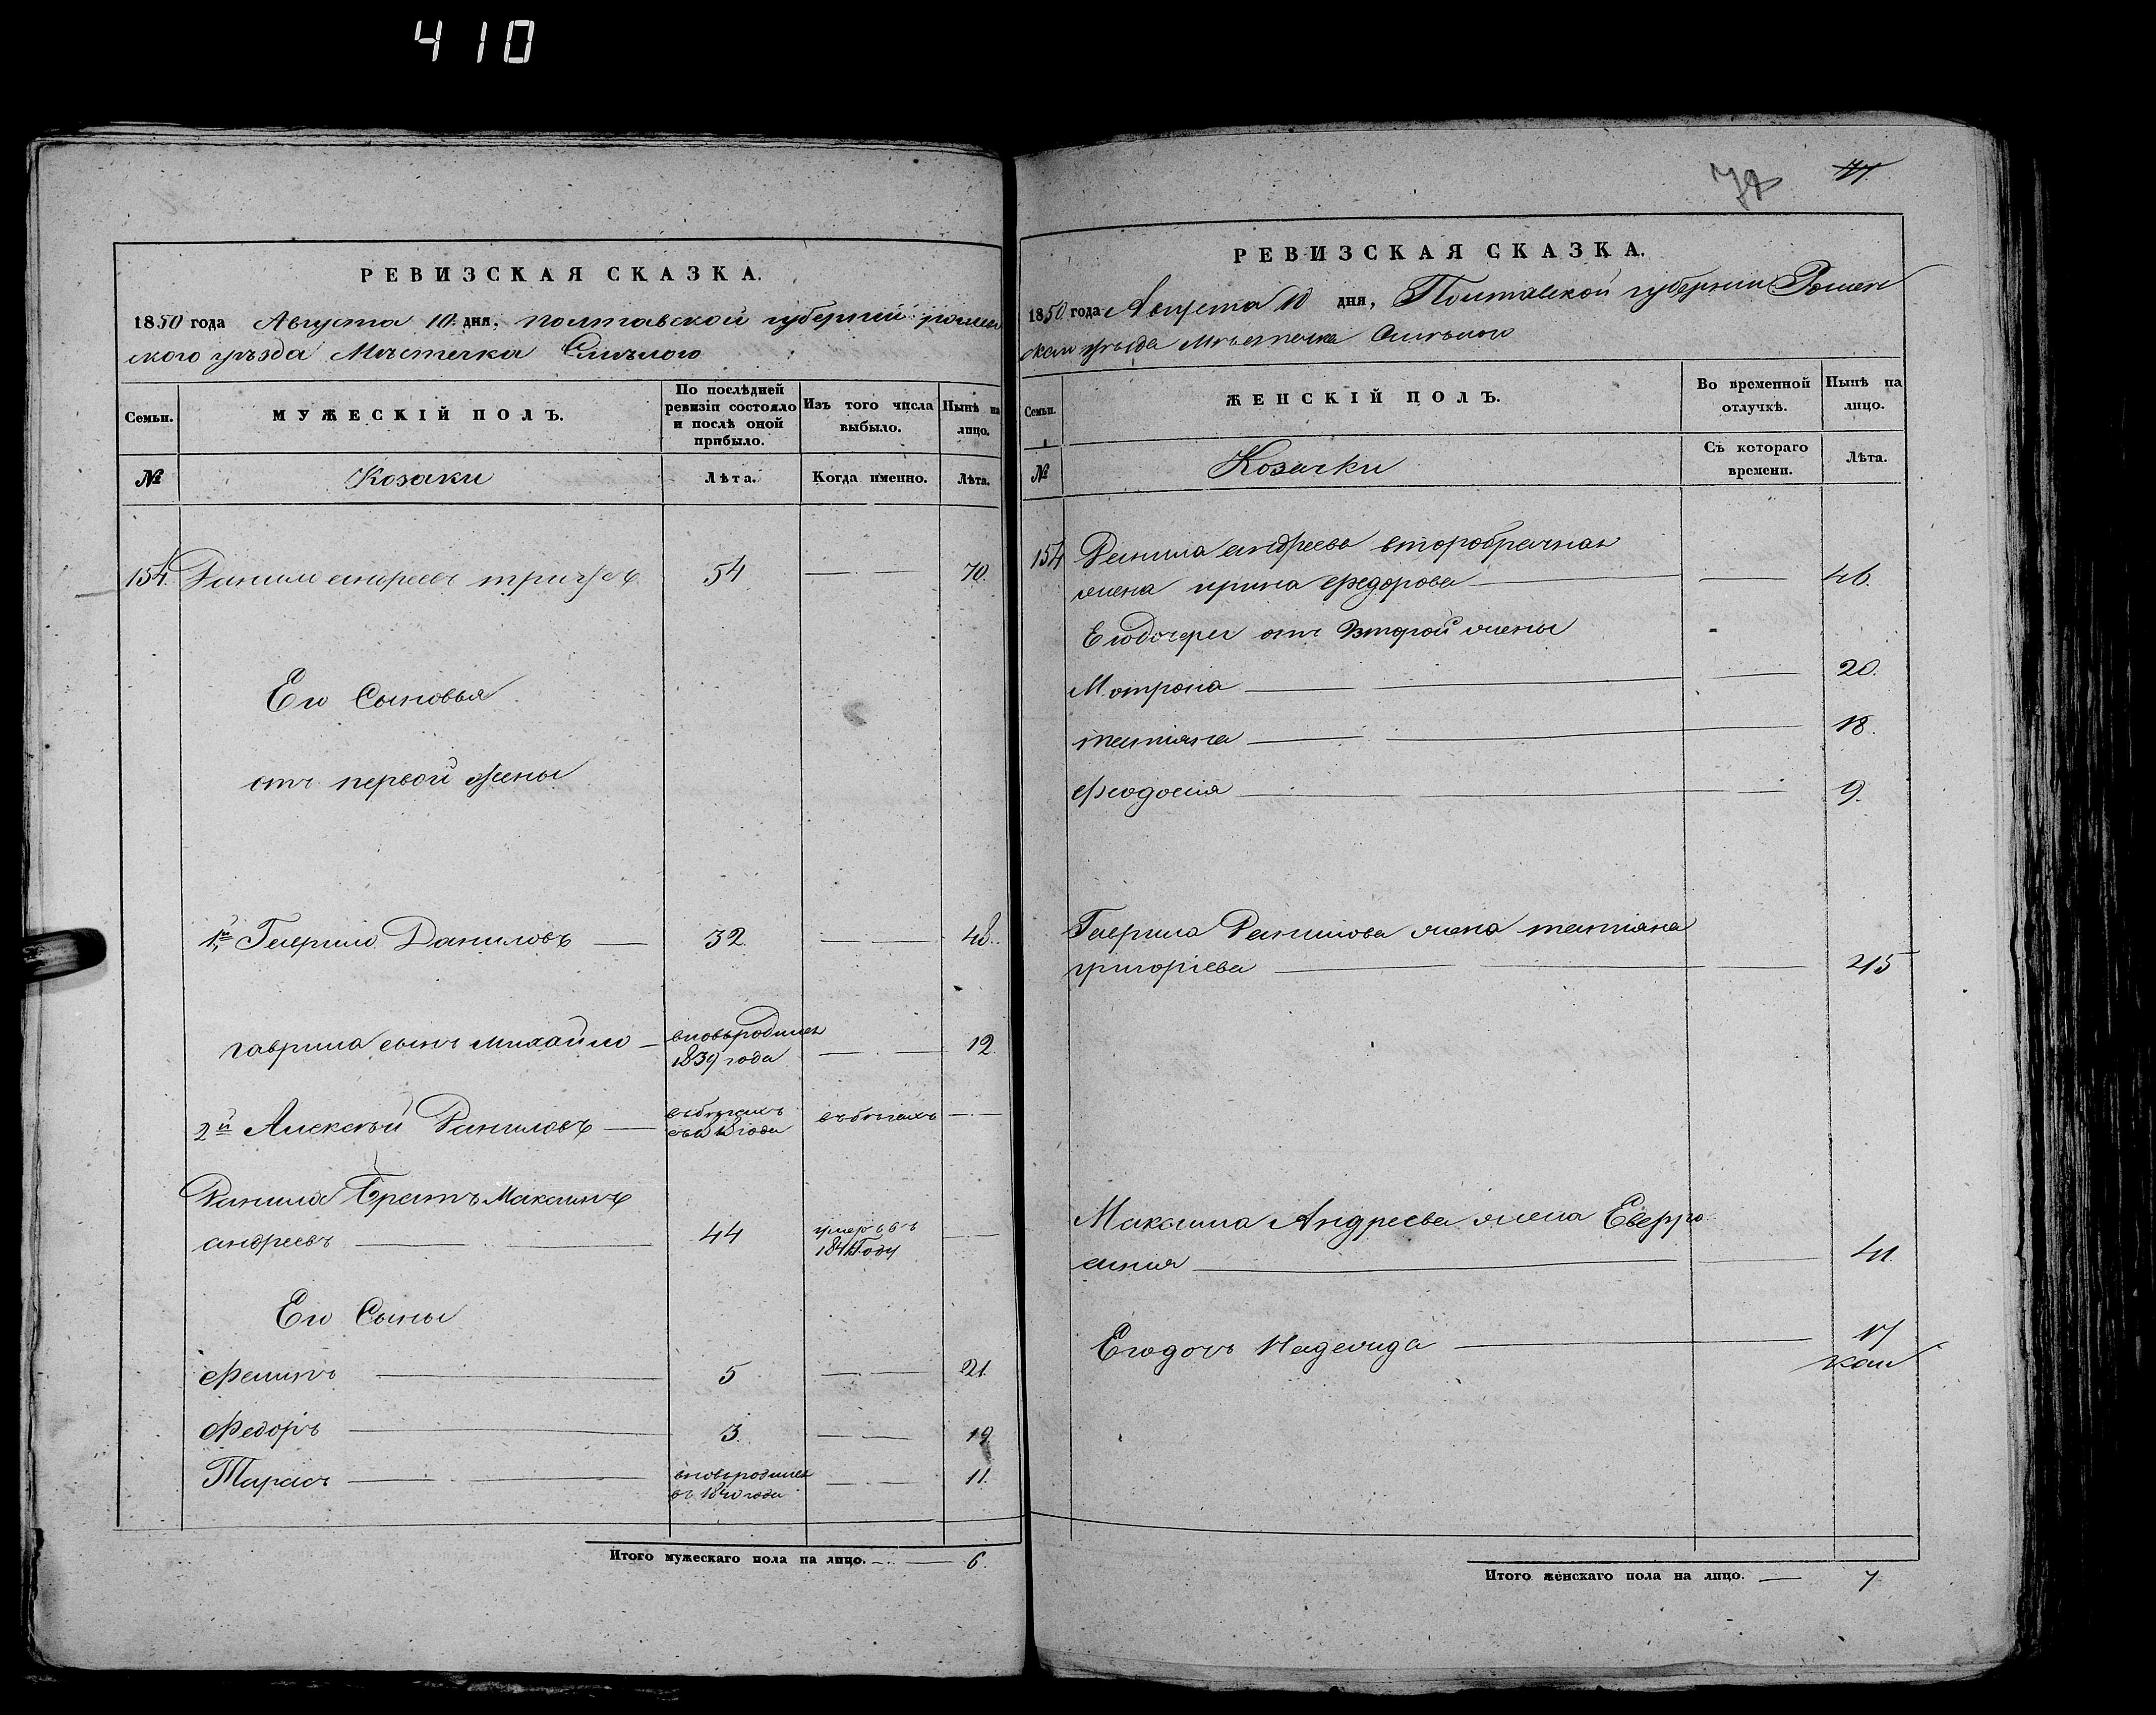 410
РЕВИЗСКАЯ СКАЗКА.
1850 года Августа 10. дня, полтавской губерніи ромен
ского уѣзда Мѣстечка Смѣлого
Семьи.
МУЖЕСКІЙ ПОЛЪ.
По послѣдней
ревизіи состояло
и послѣ оной
прибыло.
Изъ того числа
выбыло.
Нынѣ на
лицо.
№
Козаки
Лѣта.
Когда именно.
Лѣта.
154. Данило андреевъ 54 70.
Его Сыновья
отъ первой жены
1й Гаврило Даниловъ 32. 48.
гаврила сынъ михайло вновьрожден 12.
1839 года
2й Алексѣй Даниловъ вбѣгахъ въбѣгахъ
года
Данила Братъ Максимъ
андреевъ 44 умеръ въ
Году
Его Сыны
5 21.
Федоръ 3. 19
Тарасъ 11.
въ 1840 года
Итого мужескаго пола на лицо. 6.
РЕВИЗСКАЯ СКАЗКА.
1850 года Августа 10 дня, Полтавской губерніи Ромен
ского уѣзда мѣстечка Смѣлого
Семьи.
ЖЕНСКІЙ ПОЛЪ.
Во временной
отлучкѣ.
Нынѣ на
лицо.
№
Козачки
Съ котораго
времени.
Лѣта.
154 Данила андреева второбрачная
жена ирина федорова 46.
Его дочери отъ второй жены
Мотрона 20.
татіяна 18.
феодосия 9.
Гаврила Данилова жена татіяна
григоріева 45
Максима Андреева жена Евфро
синия 41.
Его дочь Надежида 17
Итого женскаго пола на лицо. 7